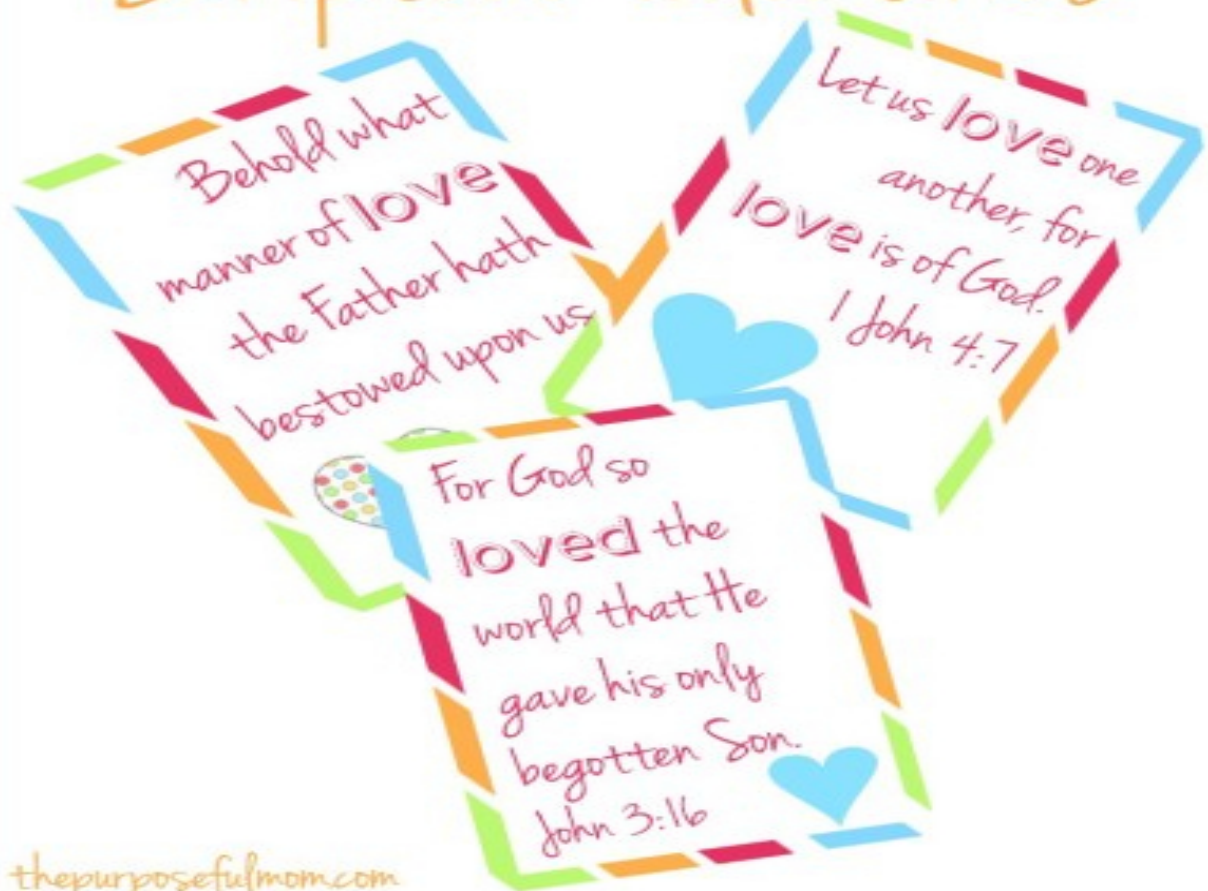 Behold what
manner of love
the Father hath
bestowed upon us
Let us love one
another, for
love is of God.
1 John 4:7
For God so
loved the
world that He
gave his only
begotten Son.
John 3:16
thepurposefulmom.com